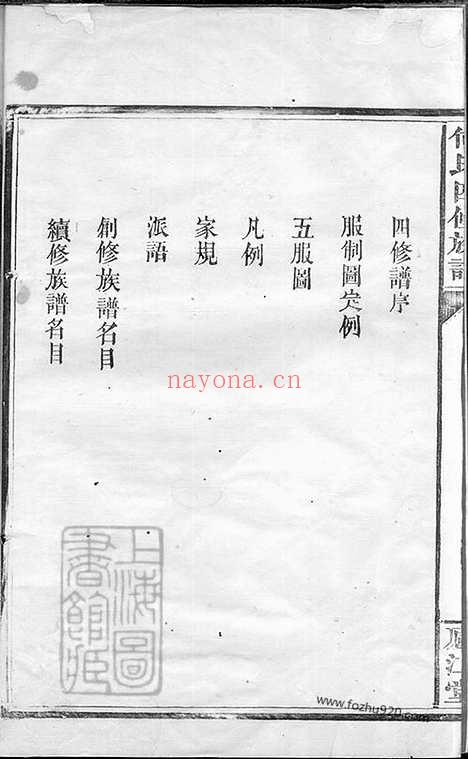 何氏四修族譜
廬江堂
四修譜序
服制圖定例
五服圖
凡例
家規
派語
創修族譜名目
續修族譜名目
上海圖書館藏
nayona.cn
www.fozhu920.com